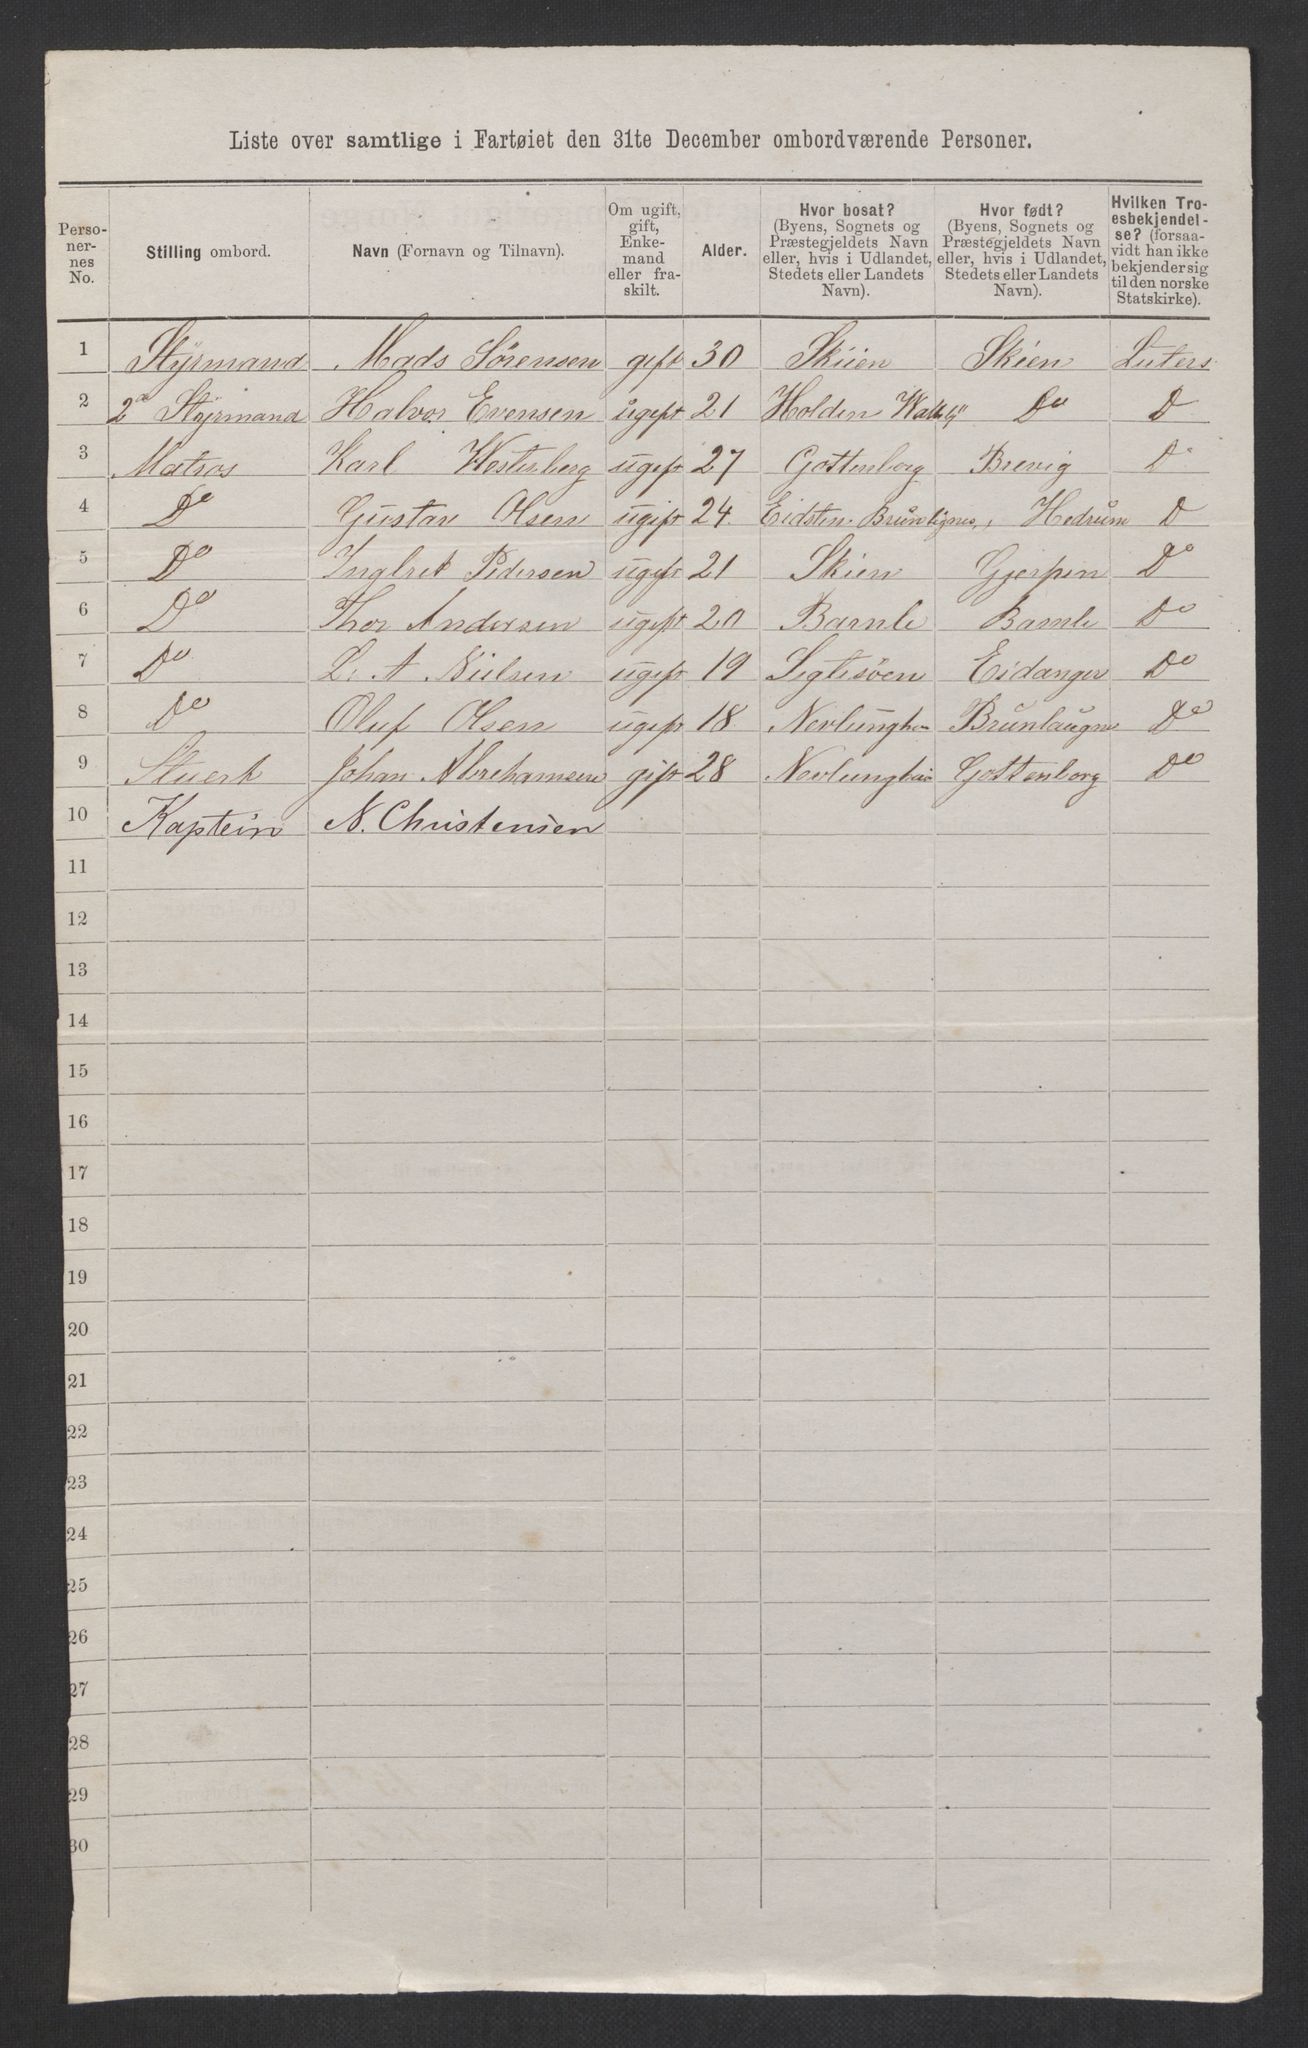 Liste over samtlige i Fartøiet den 31te December ombordværende Personer.
Personernes No. | Stilling ombord. | Navn (Fornavn og Tilnavn). | Om ugift, gift, Enkemand eller fraskilt. | Alder. | Hvor bosat? (Byens, Sognets og Præstegjeldets Navn eller, hvis i Udlandet, Stedets eller Landets Navn). | Hvor født? (Byens, Sognets og Præstegjeldets Navn eller, hvis i Udlandet, Stedets eller Landets Navn). | Hvilken Troesbekjendelse? (forsaavidt han ikke bekjender sig til den norske Statskirke).
1 Styrmand Mads Sörensen gift 30 Skiien Skien Luters
2 2n Styrmand Halvor Evensen ugift 21 Holden Do D
3 Matros Karl Westerberg ugift 27 Gottenborg Brevig Do
4 Do Gustav Olsen ugift 24. Eidsten. Hedrum D
5 Do Inglret Pedersen ugift 21 Skien Gjerpen Do
6 Do Thor Andersen ugift 20 Bamle Bamle Do
7 Do L. A. Nielsen ugift 19 Sigtesöen Eidanger Do
8 Do Oluf Olsen ugift 18. Nevlungha Brunlaugne Do
9 Stuert Johan Abrehamsen gift 28 Nevlungha Gottenborg Do
10 Kaptein N. Christensen
11
12
13
14
15
16
17
18
19
20
21
22
23
24
25
26
27
28
29
30